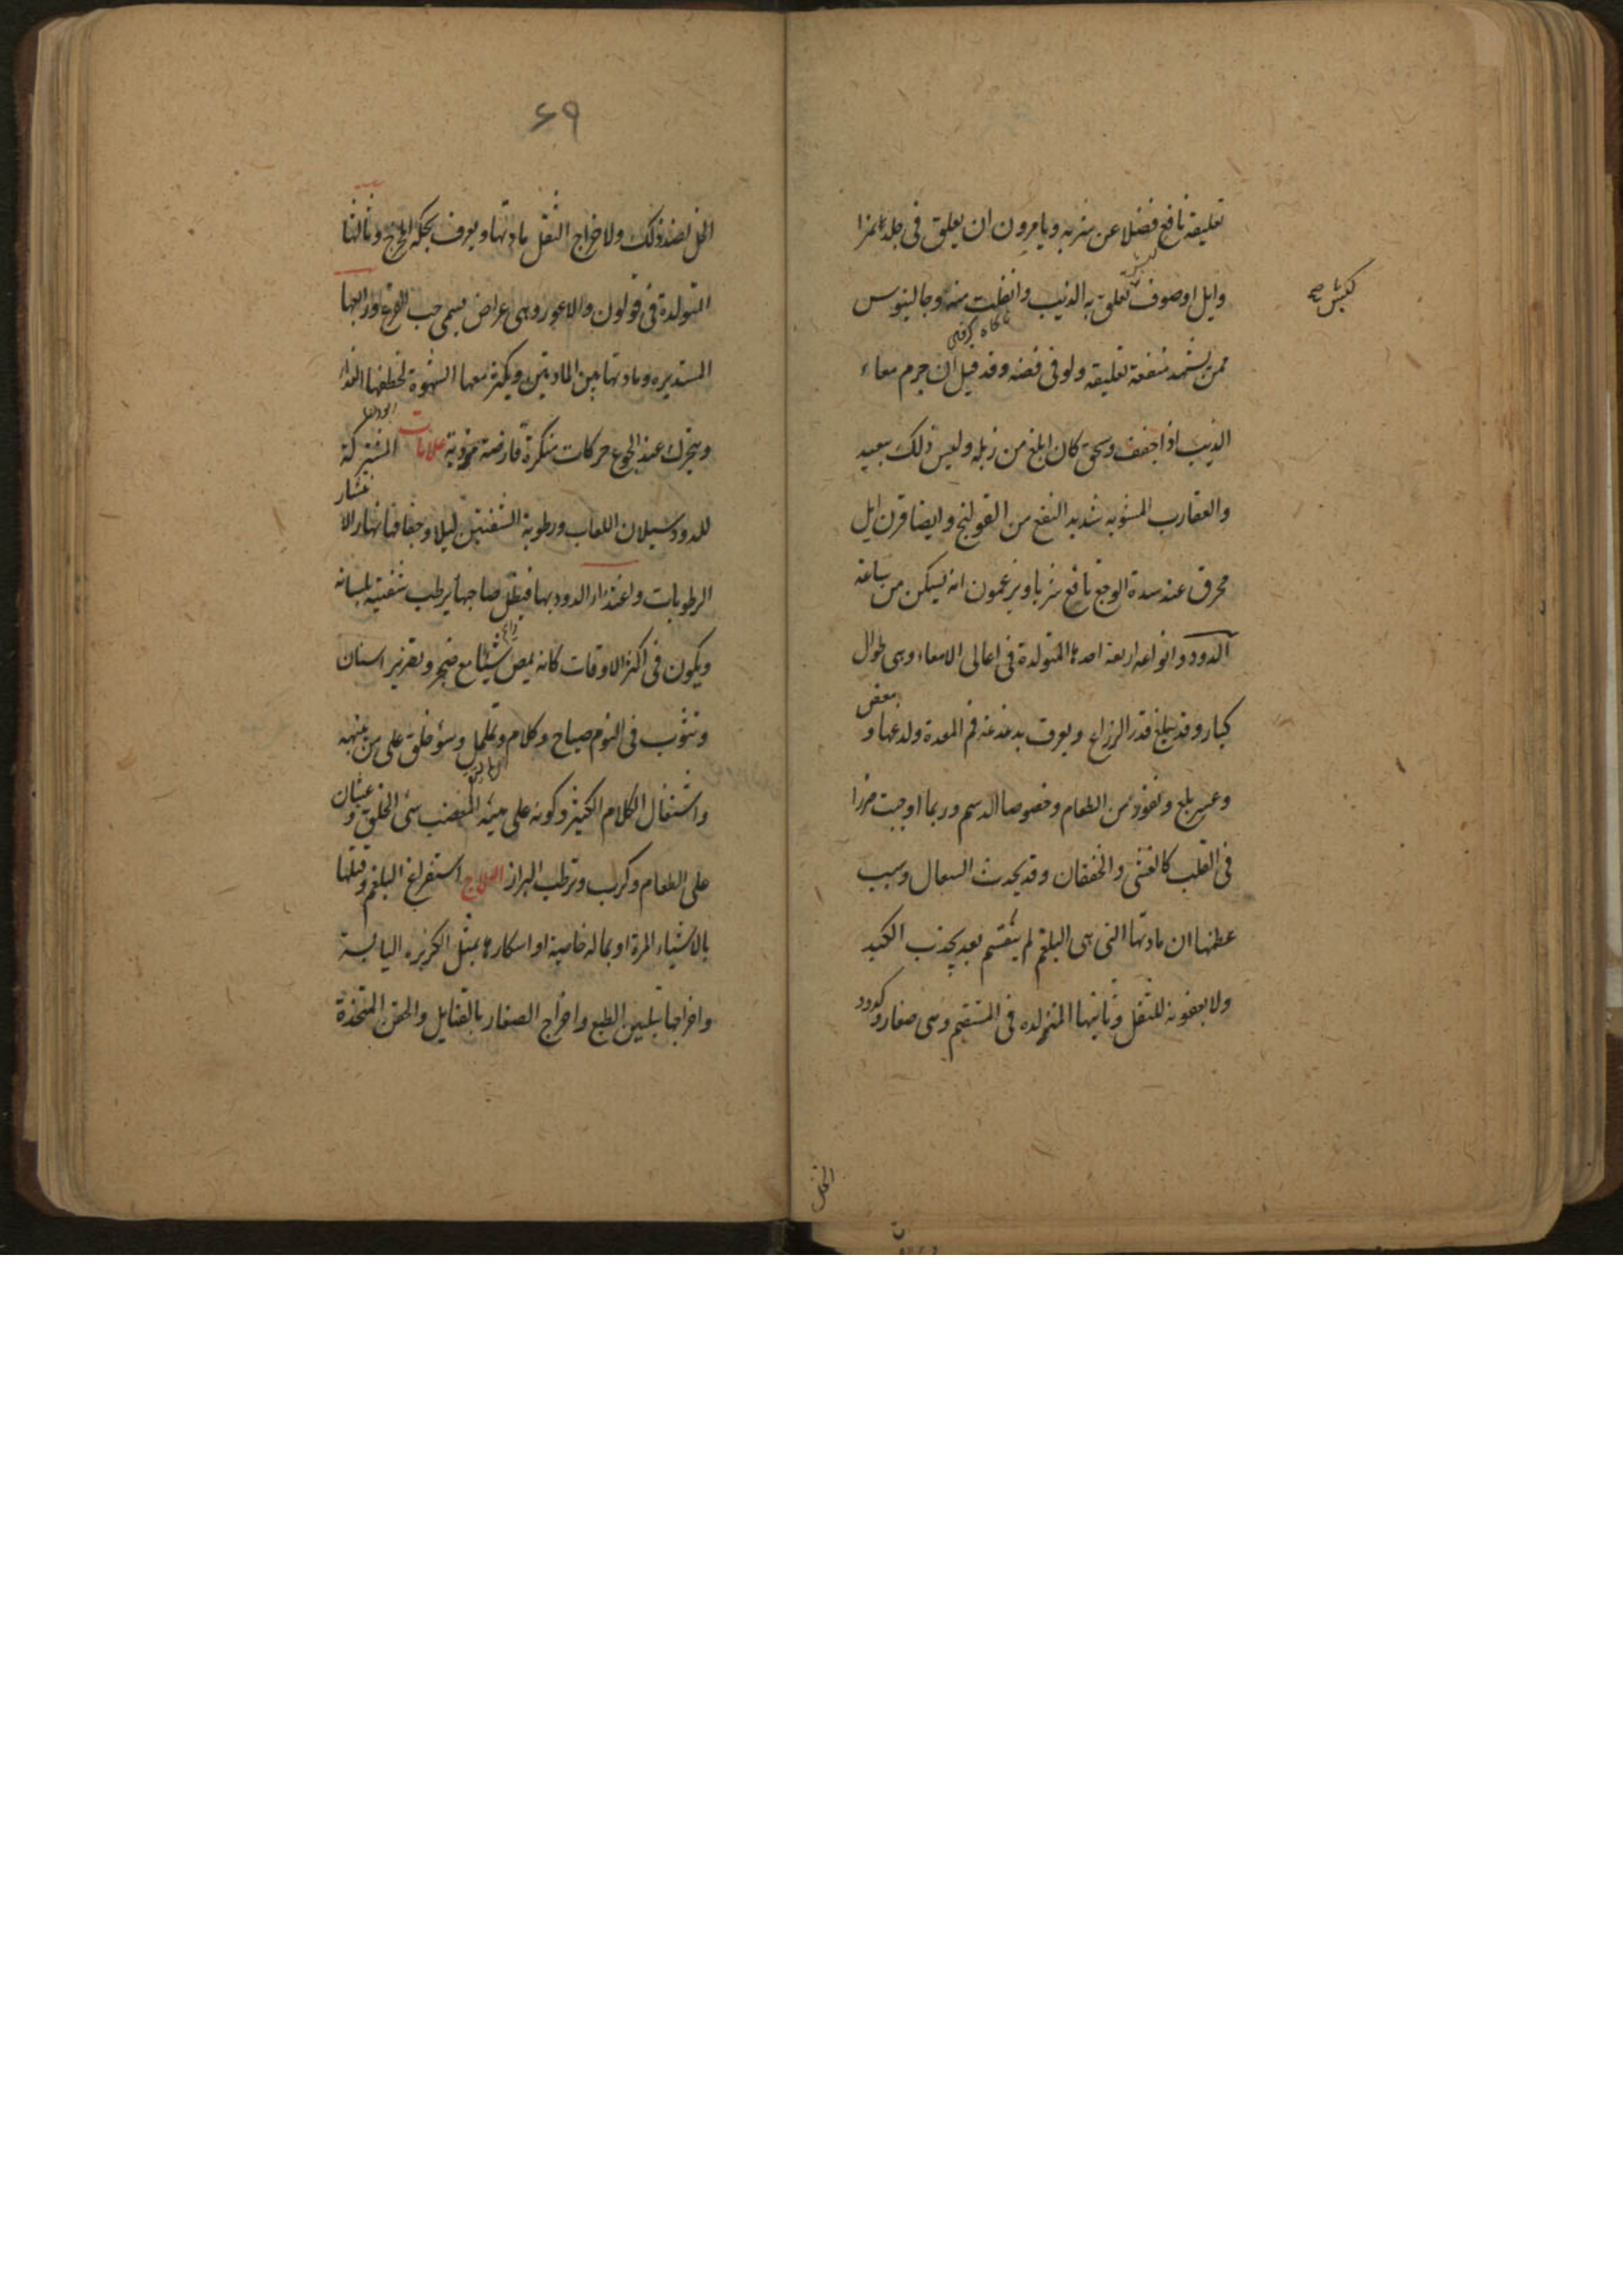 تعليقه نافع فضلا عن شربه ويامرون ان يعلق فى جلد
وايل او صوف كبش تعلق به الذيب وانفلت منه وجالينوس
كبش صح
ممن يشهد منفعة تعليقه ولو فى فضه وقد قيل ان جرم معاء
الذيب اذا جفف وسحق كان ابلغ من زبله وليس ذلك ببعيد
والعقارب المشويه شديد النفع من القولنج وايضا قرن ايل
محرق عند شدة الوجع نافع شربا ويزعمون انه يسكن من ساعته
الدود وانواعه اربعة احدها المتولدة فى اعالى الامعاء وهى طوال
كبار وقد يبلغ قدر الذراع ويعرف بدغدغة فم المعدة ولدغها و
وعسر بلع ونفوذ من الطعام وخصوصا الدسم وربما اوجبت ضررا
فى القلب كالغشى والخفقان وقد يحدث السعال وسبب
عظمها ان مادتها التى هى البلغم لم ينقسم بعد بجذب الكبد
ولا بعفونه للثفل وثانيها المتولده فى المستقيم وهى صغار كدود
الخل
۶۹
الخل لضد ذلك ولاخراج الثفل مادتها ويعرف بحكة المخرج وثالثها
المتولدة فى قولون والاعور وهى عراض يسمى حب القرع ورابعها
المستديره ومادتها بين المادتين ويكثر معها الشهوة لخطفها الغذاء
ويتحرك عند الجوع حركات منكرة قارضة موذية علامات المشتركة
للدود سيلان اللعاب ورطوبة الشفتين ليلا وجفافها نهارا لانتشار
الرطوبات واغتذاء الدود بها فيظل صاحبها يرطب شفتيه بلسانه
ويكون فى اكثر الاوقات كانه يمص شيئا مع ضجر وتصرير اسنان
وتثوب فى النوم صياح وكلام وتململ وسؤ خلق على من ينبهه
واستثقال الكلام الكثير وكونه على هيئة المغضب سئ الخلق وغثيان
على الطعام وكرب وترطب البراز العلاج استفراغ البلغم وقتلها
بالاشياء المرة او بماله خاصية او اسكارها بمثل الكزبره اليابسة
واخراجها بتليين الطبع واخراج الصغار بالفتايل والحقن المتخذة